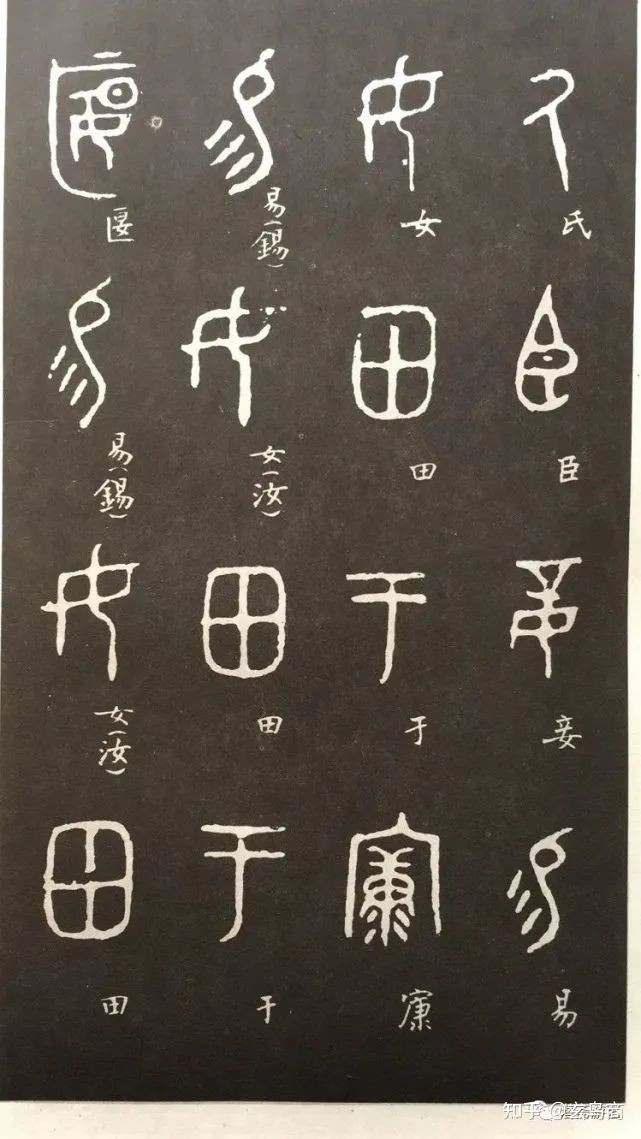 氏 臣 妾 易
女 田 于 㝩
易(錫) 女(汝) 田 于
匽 易(錫) 女(汝) 田
知乎 @玄鸟商